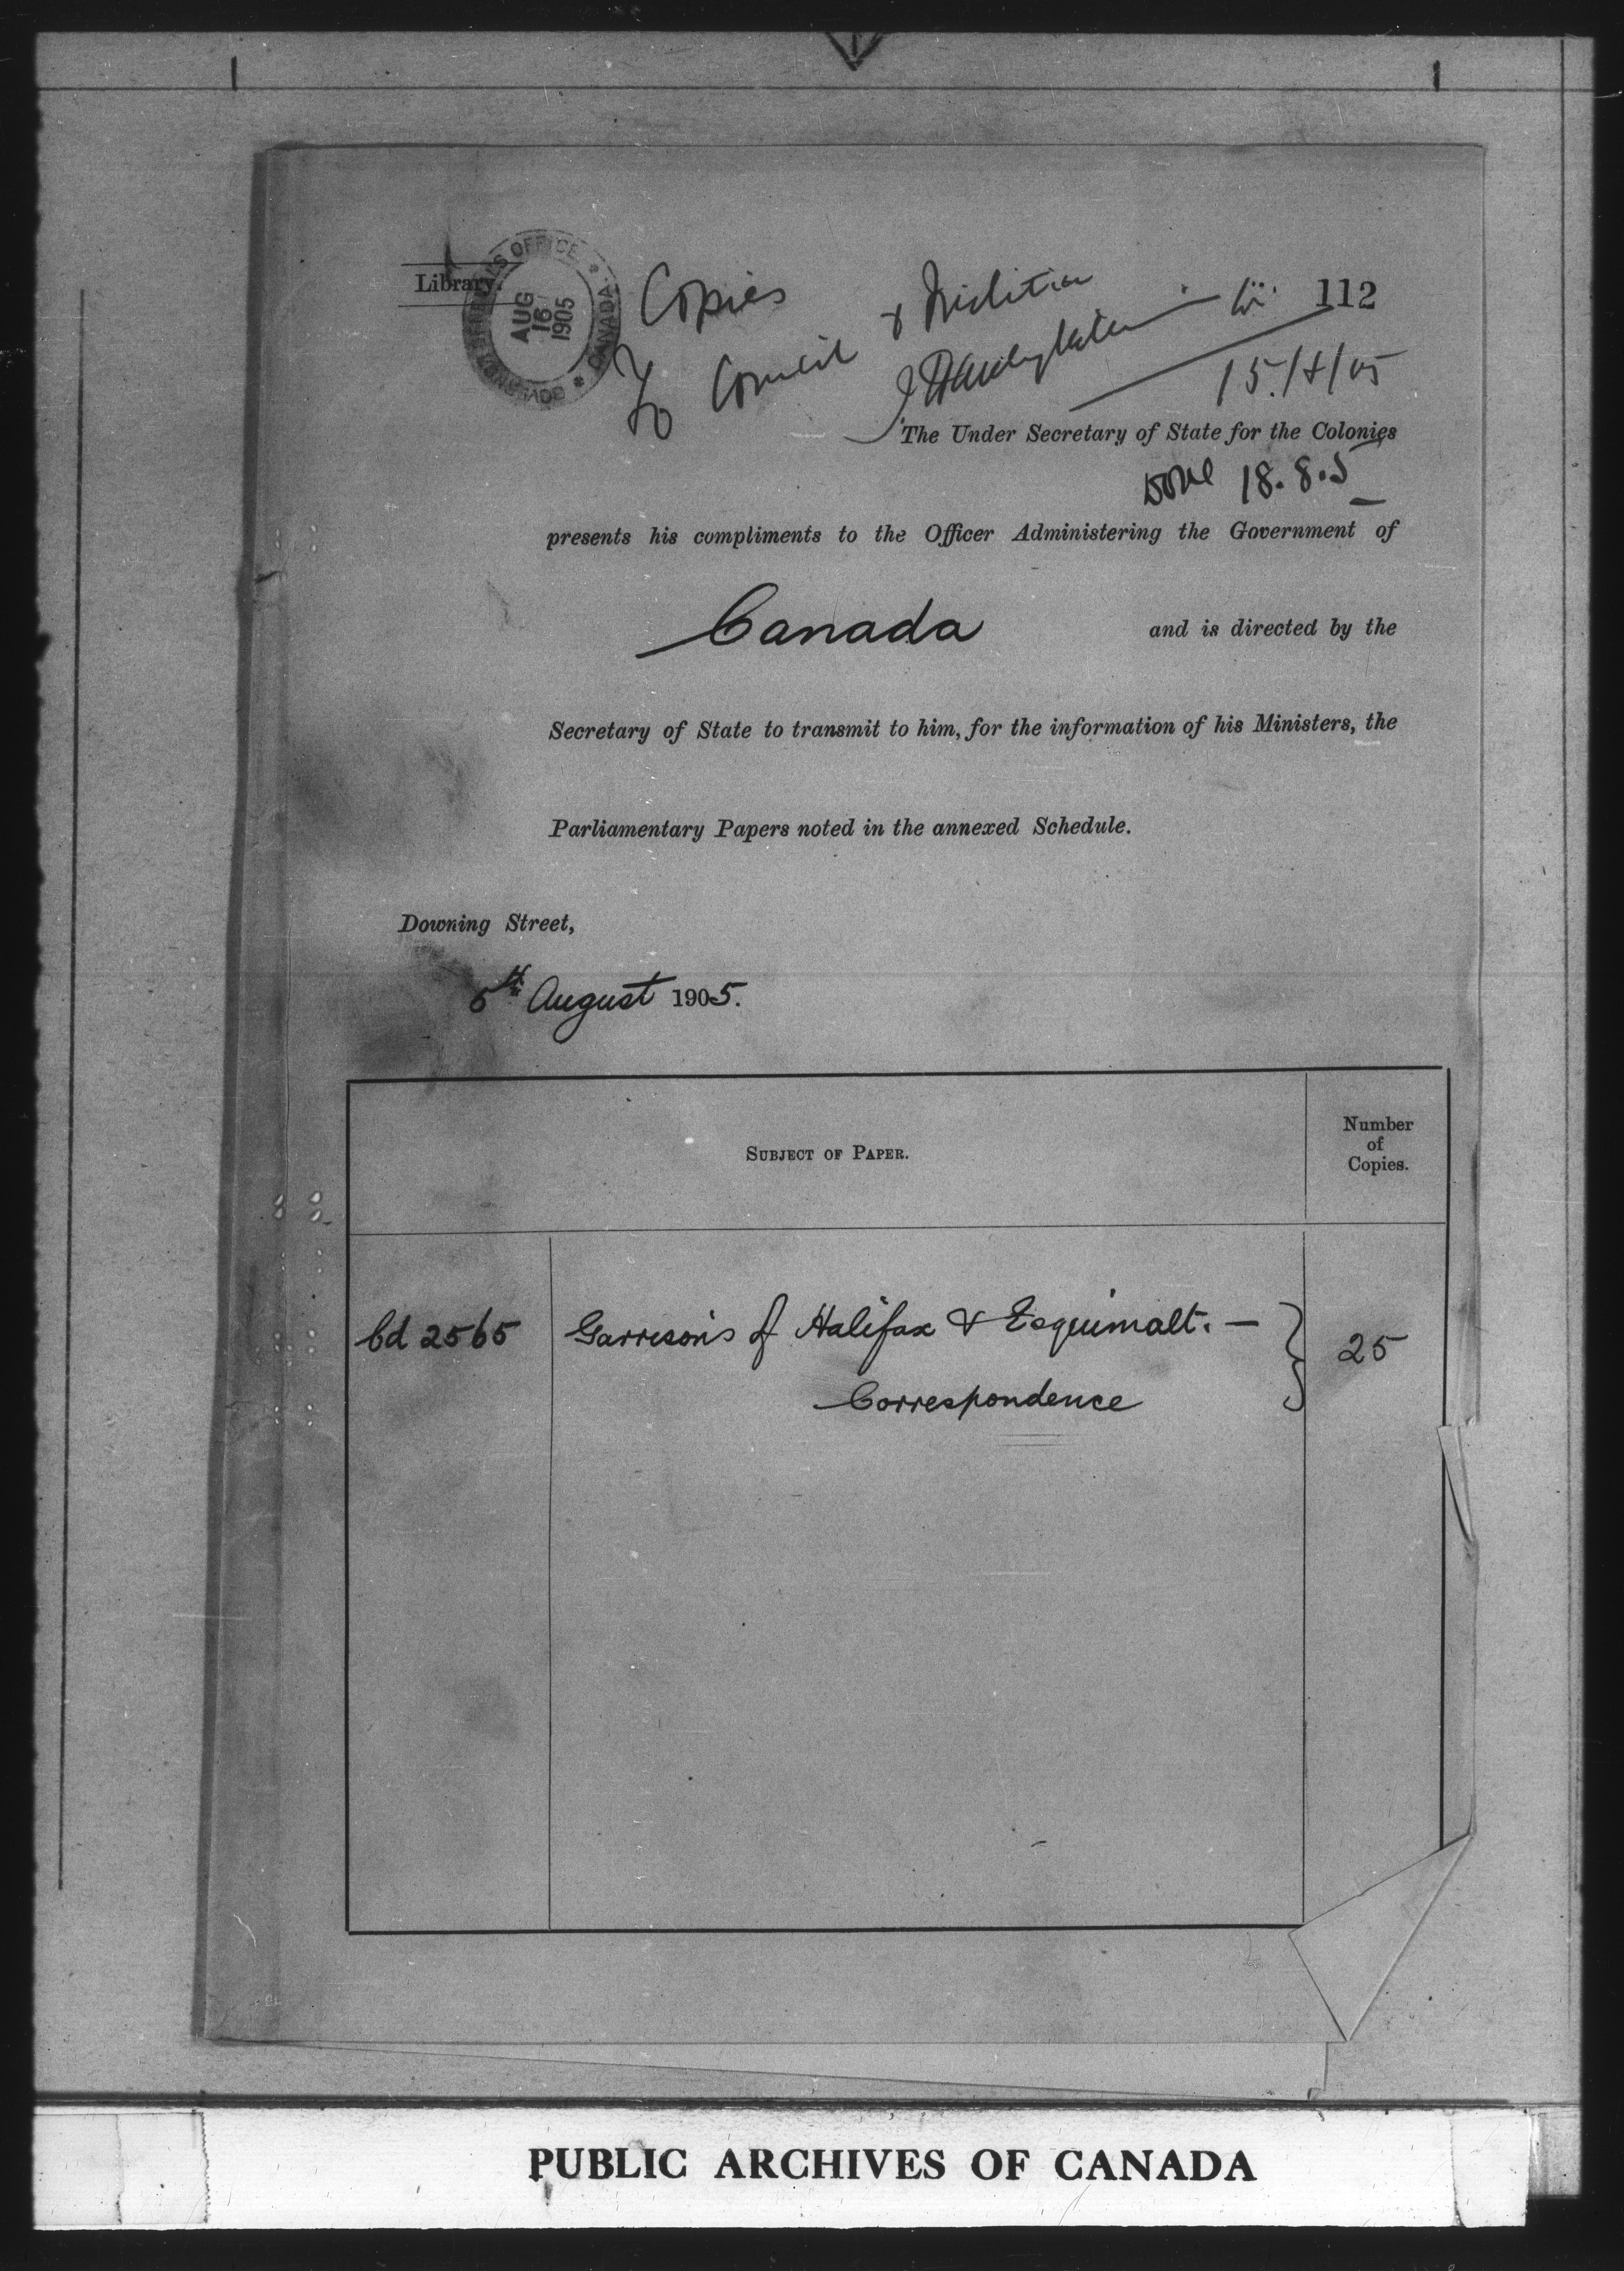 Library.
GOVERNOR GENERAL'S OFFICE * CANADA *
AUG
16
1905
Copies
To Council & Militia
112
15/8/05
The Under Secretary of State for the Colonies
Done 18.8.5
presents his compliments to the Officer Administering the Government of
Canada and is directed by the
Secretary of State to transmit to him, for the information of his Ministers, the
Parliamentary Papers noted in the annexed Schedule.
Downing Street,
5th August 1905.
SUBJECT OF PAPER.
Number
of
Copies.
Cd 2565 Garrisons of Halifax & Esquimalt. — 25
Correspondence
PUBLIC ARCHIVES OF CANADA